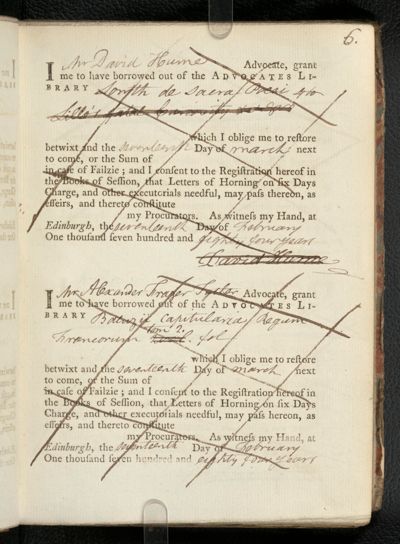 6.
I Mr David Hume Advocate, grant
me to have borrowed out of the ADVOCATES LI-
BRARY Lowth de Sacra Poesi 4to
which I oblige me to reſtore
betwixt and the seventeenth Day of march next
to come, or the Sum of
in caſe of Failzie; and I conſent to the Regiſtration hereof in
the Books of Seſſion, that Letters of Horning on ſix Days
Charge, and other executorials needful, may paſs thereon, as
effeirs, and thereto conſtitute
my Procurators. As witneſs my Hand, at
Edinburgh, the seventeenth Day of February
One thouſand ſeven hundred and eighty four years
David Hume
I Mr Alexander Fraser Tytler Advocate, grant
me to have borrowed out of the ADVOCATES LI-
BRARY Baluzii Capitularia Regum
francorum tom. 2. fol
which I oblige me to reſtore
betwixt and the seventeenth Day of march next
to come, or the Sum of
in caſe of Failzie; and I conſent to the Regiſtration hereof in
the Books of Seſſion, that Letters of Horning on ſix Days
Charge, and other executorials needful, may paſs hereon, as
effeirs, and thereto conſtitute
my Procurators. As witneſs my Hand, at
Edinburgh, the seventeenth Day of February
One thouſand ſeven hundred and eighty four years